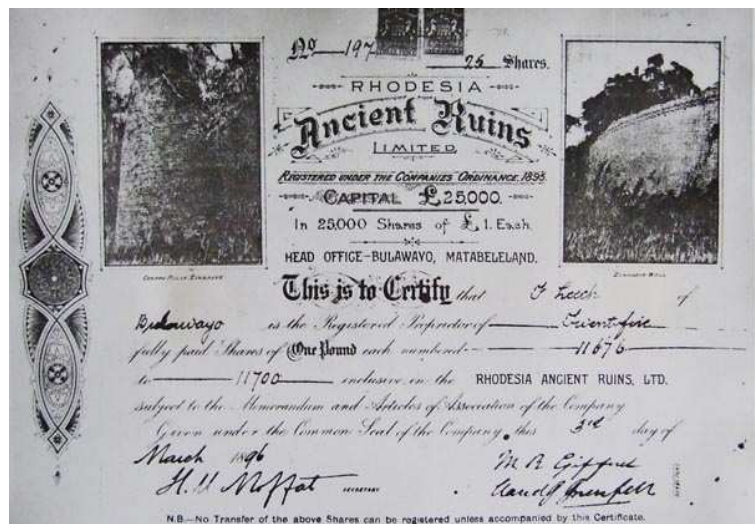 No 197
25 Shares.
RHODESIA
Ancient Ruins
LIMITED
REGISTERED UNDER THE COMPANIES ORDINANCE, 1895
CAPITAL £25,000.
In 25,000 Shares of £1. Each.
HEAD OFFICE-BULAWAYO, MATABELELAND.
This is to Certify that J Leech of
Bulawayo is the Registered Proprietor of Twentyfive
fully paid Shares of One Pound each numbered 11676
to 11700 inclusive in the RHODESIA ANCIENT RUINS, LTD.
subject to the Memorandum and Articles of Association of the Company
Given under the Common Seal of the Company, this 3rd day of
March 1896
H. U Moffat SECRETARY
M R Gifford
Grenfell
N.B.-No Transfer of the above Shares can be registered unless accompanied by this Certificate.